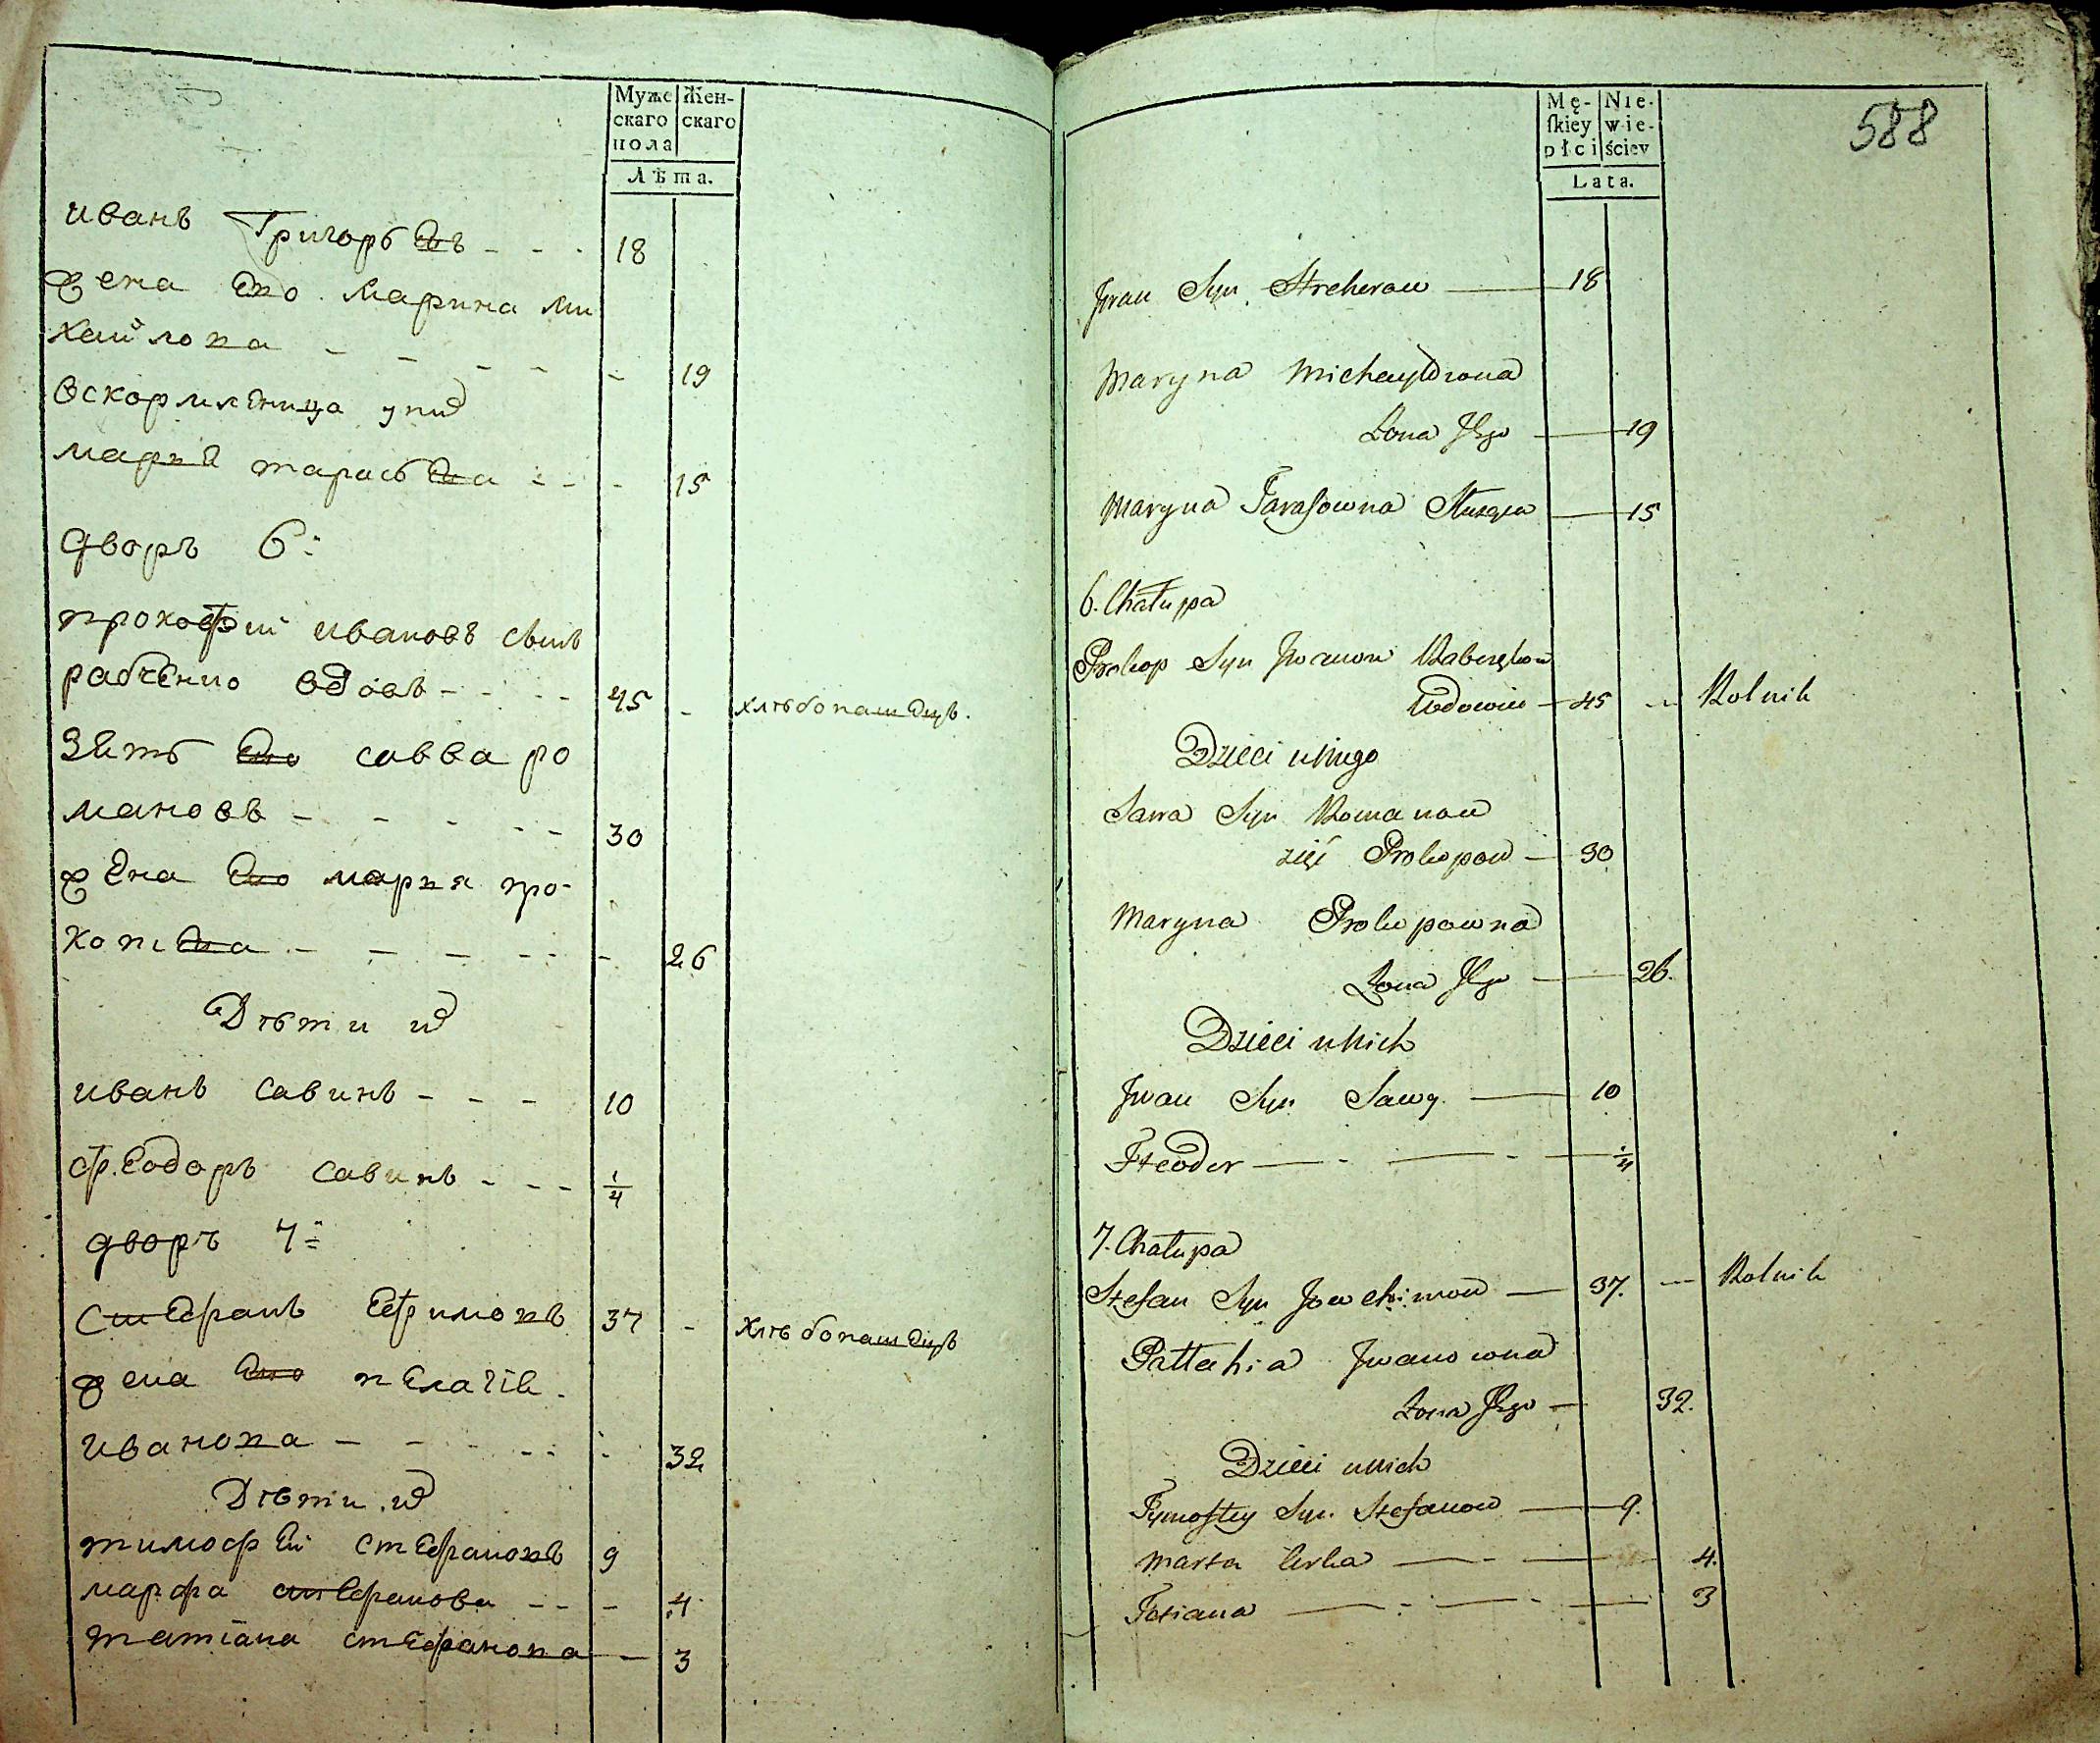 Муже
скаго
пола
Жен-
скаго
Лѣта.
иванъ Григорьевъ - - - 18
жена его марина ми
хайлова - - - - - 19
вскормленица у них
мария тарасьева - - - 15
дворъ 6й
прокофий ивановъ сынъ
рабченко вдовъ - - - - 45 - хлѣбопашецъ.
Зять его савва ро
мановъ - - - - - 30
жена его мария про-
копиева - - - - - - 26
Дѣти их
иванъ савинъ - - - 10
феодоръ савинъ - - - 1/4
дворъ 7й
Стефанъ Ефимовъ 37 - хлѣбопашецъ
жена его пелагия
иванова - - - - - - 32
Дѣти их
тимофей стефановъ 9
марфа стефанова - - - 4
татиана стефанова - 3
588
Mę-
skiey
płci
Nie-
wie-
ściey
Lata.
Iwan Syn — 18
Maryna Michayłowna
Żona Jego — 19
Maryna Tarasowna — 15
6. Chałupa
Prokop Syn Iwanow
Wdowiec — 45 — Rolnik
Dzieci u niego
Sawa Syn Romanow
zięć Prokopow — 30
Maryna Prokopowna
Żona Jego — 26.
Dzieci u nich
Iwan Syn Sawy — 10
Fteodor — - — - — 1/4
7. Chałupa
Stefan Syn Joachimow — 37. — Rolnik
Pallahia Iwanowna
Żona Jego — 32.
Dzieci u nich
Tymoftey Syn Stefanow — 9.
Marta Corka — - — 4.
Tatiana — - — - — 3